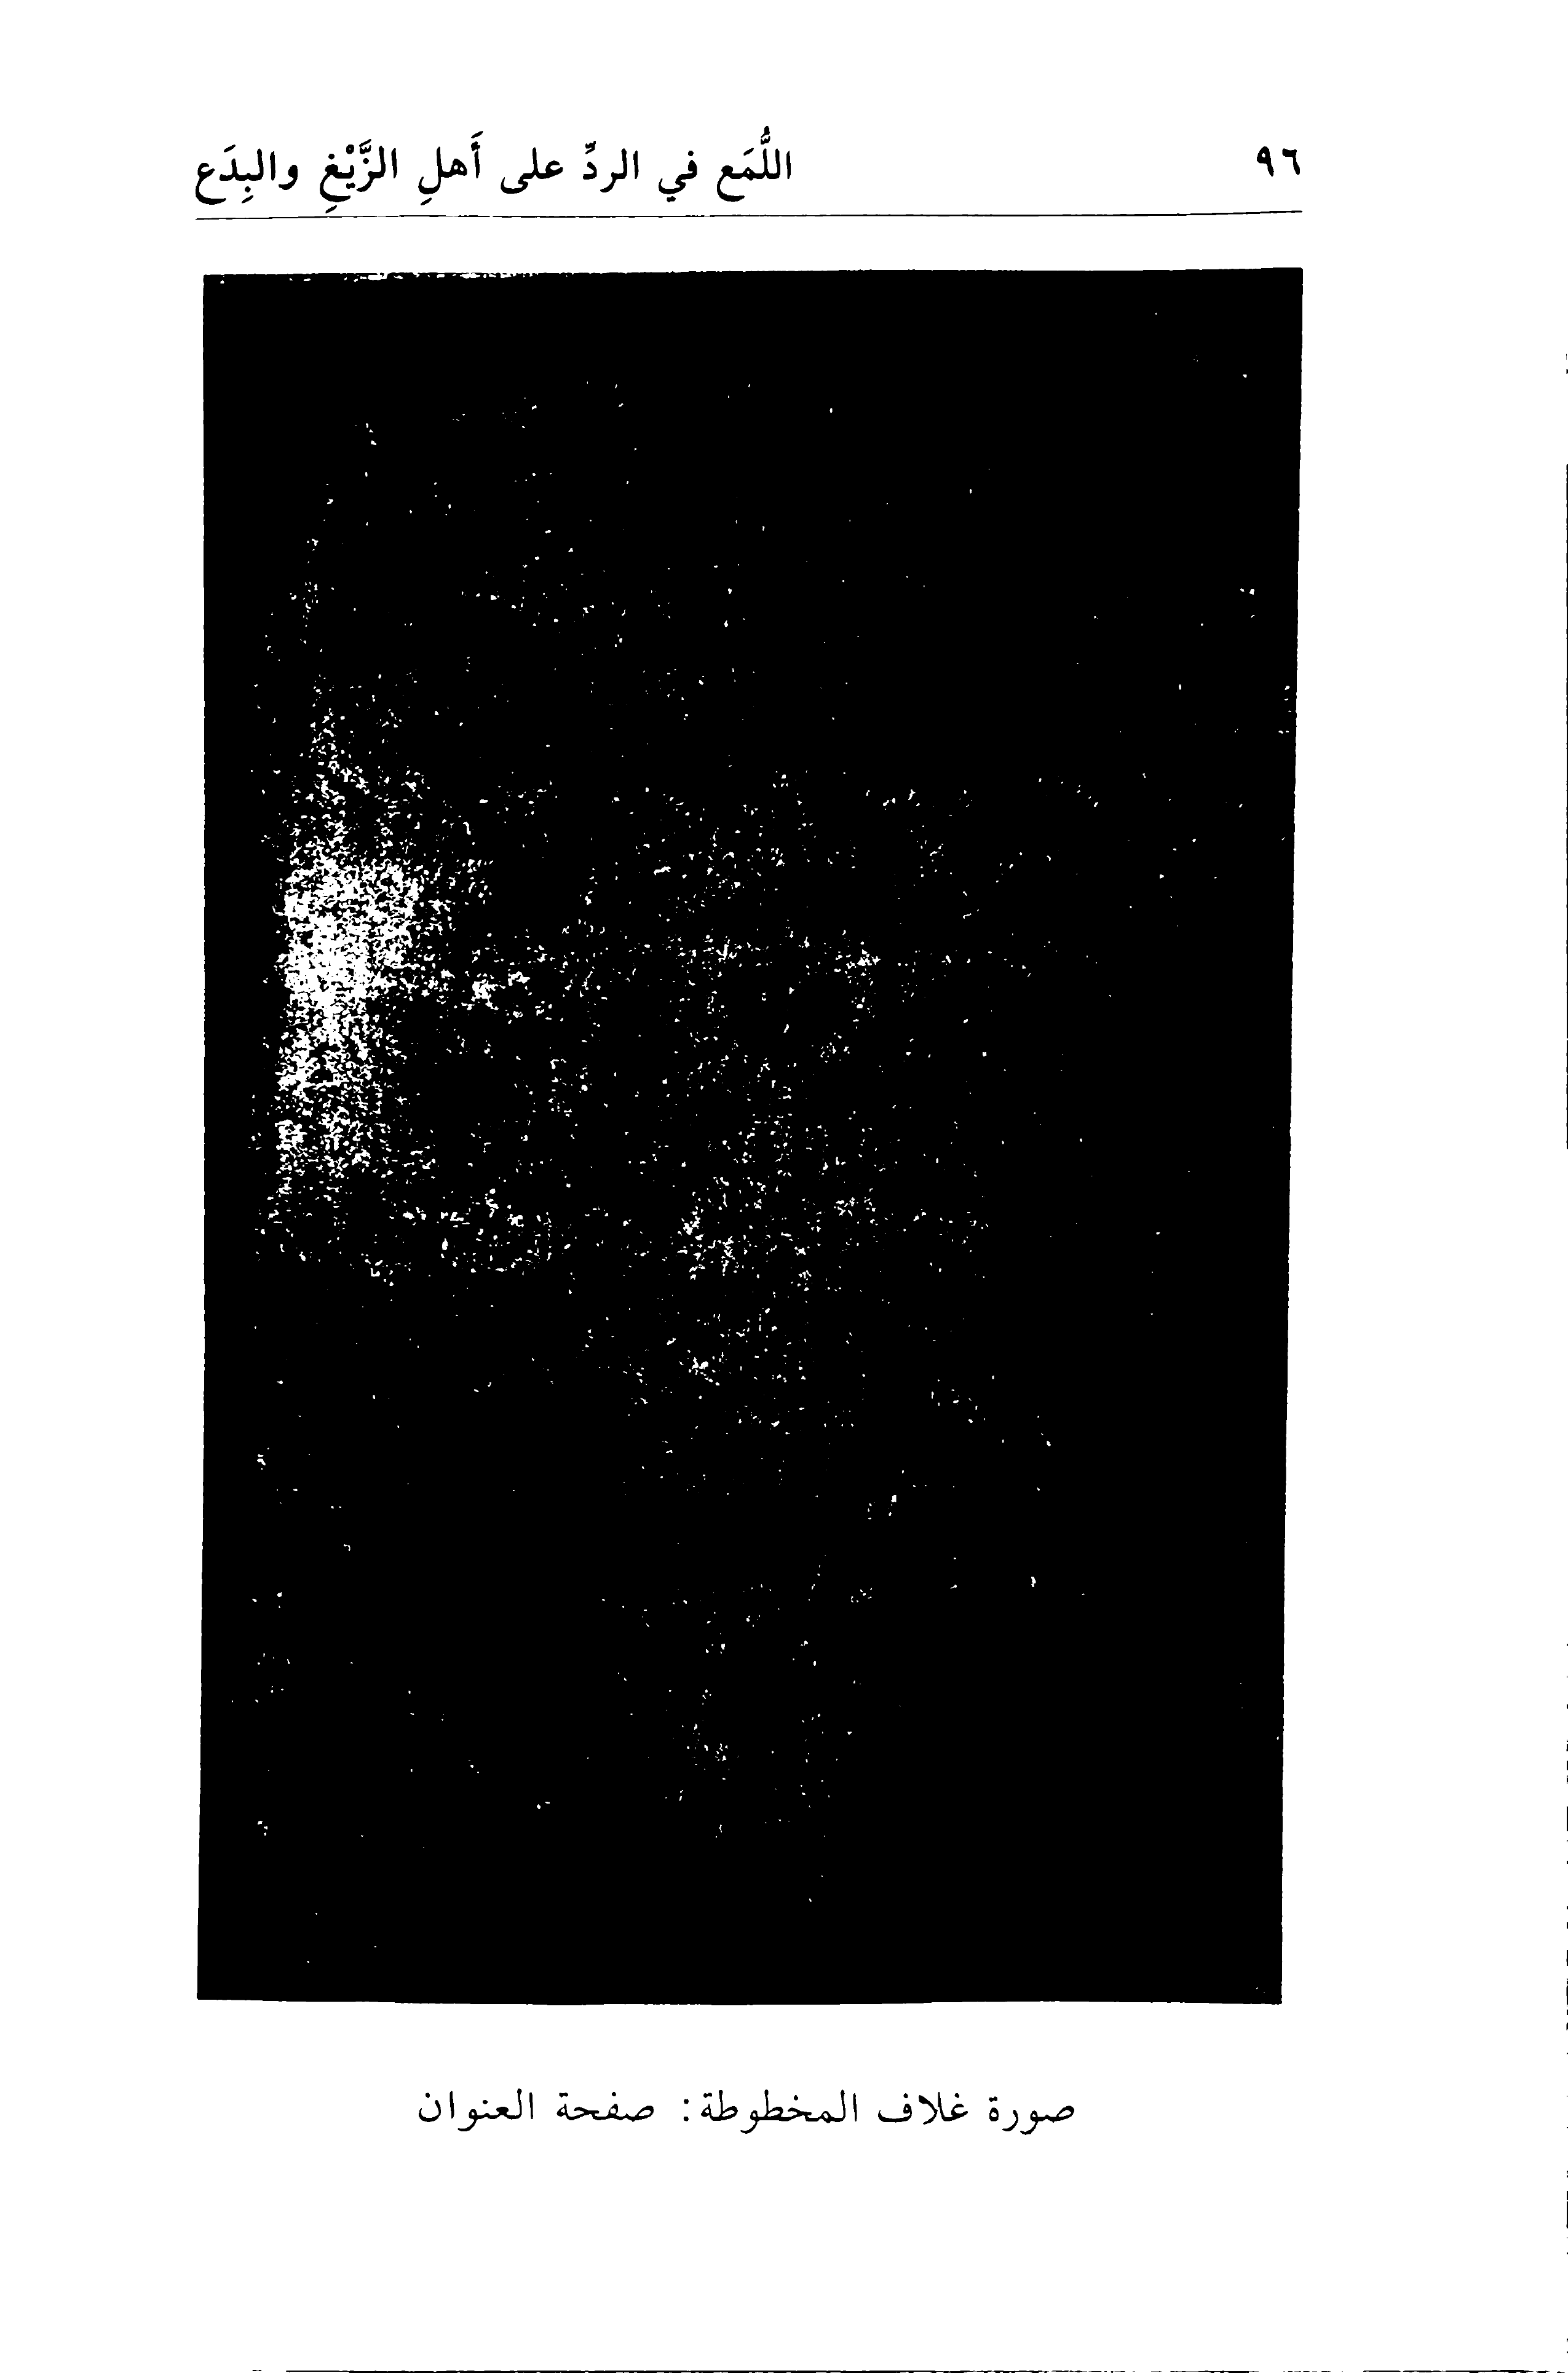 ٩٦
اللُّمَع في الردِّ على أَهلِ الزَّيْغِ والبِدَع
صورة غلاف المخطوطة: صفحة العنوان